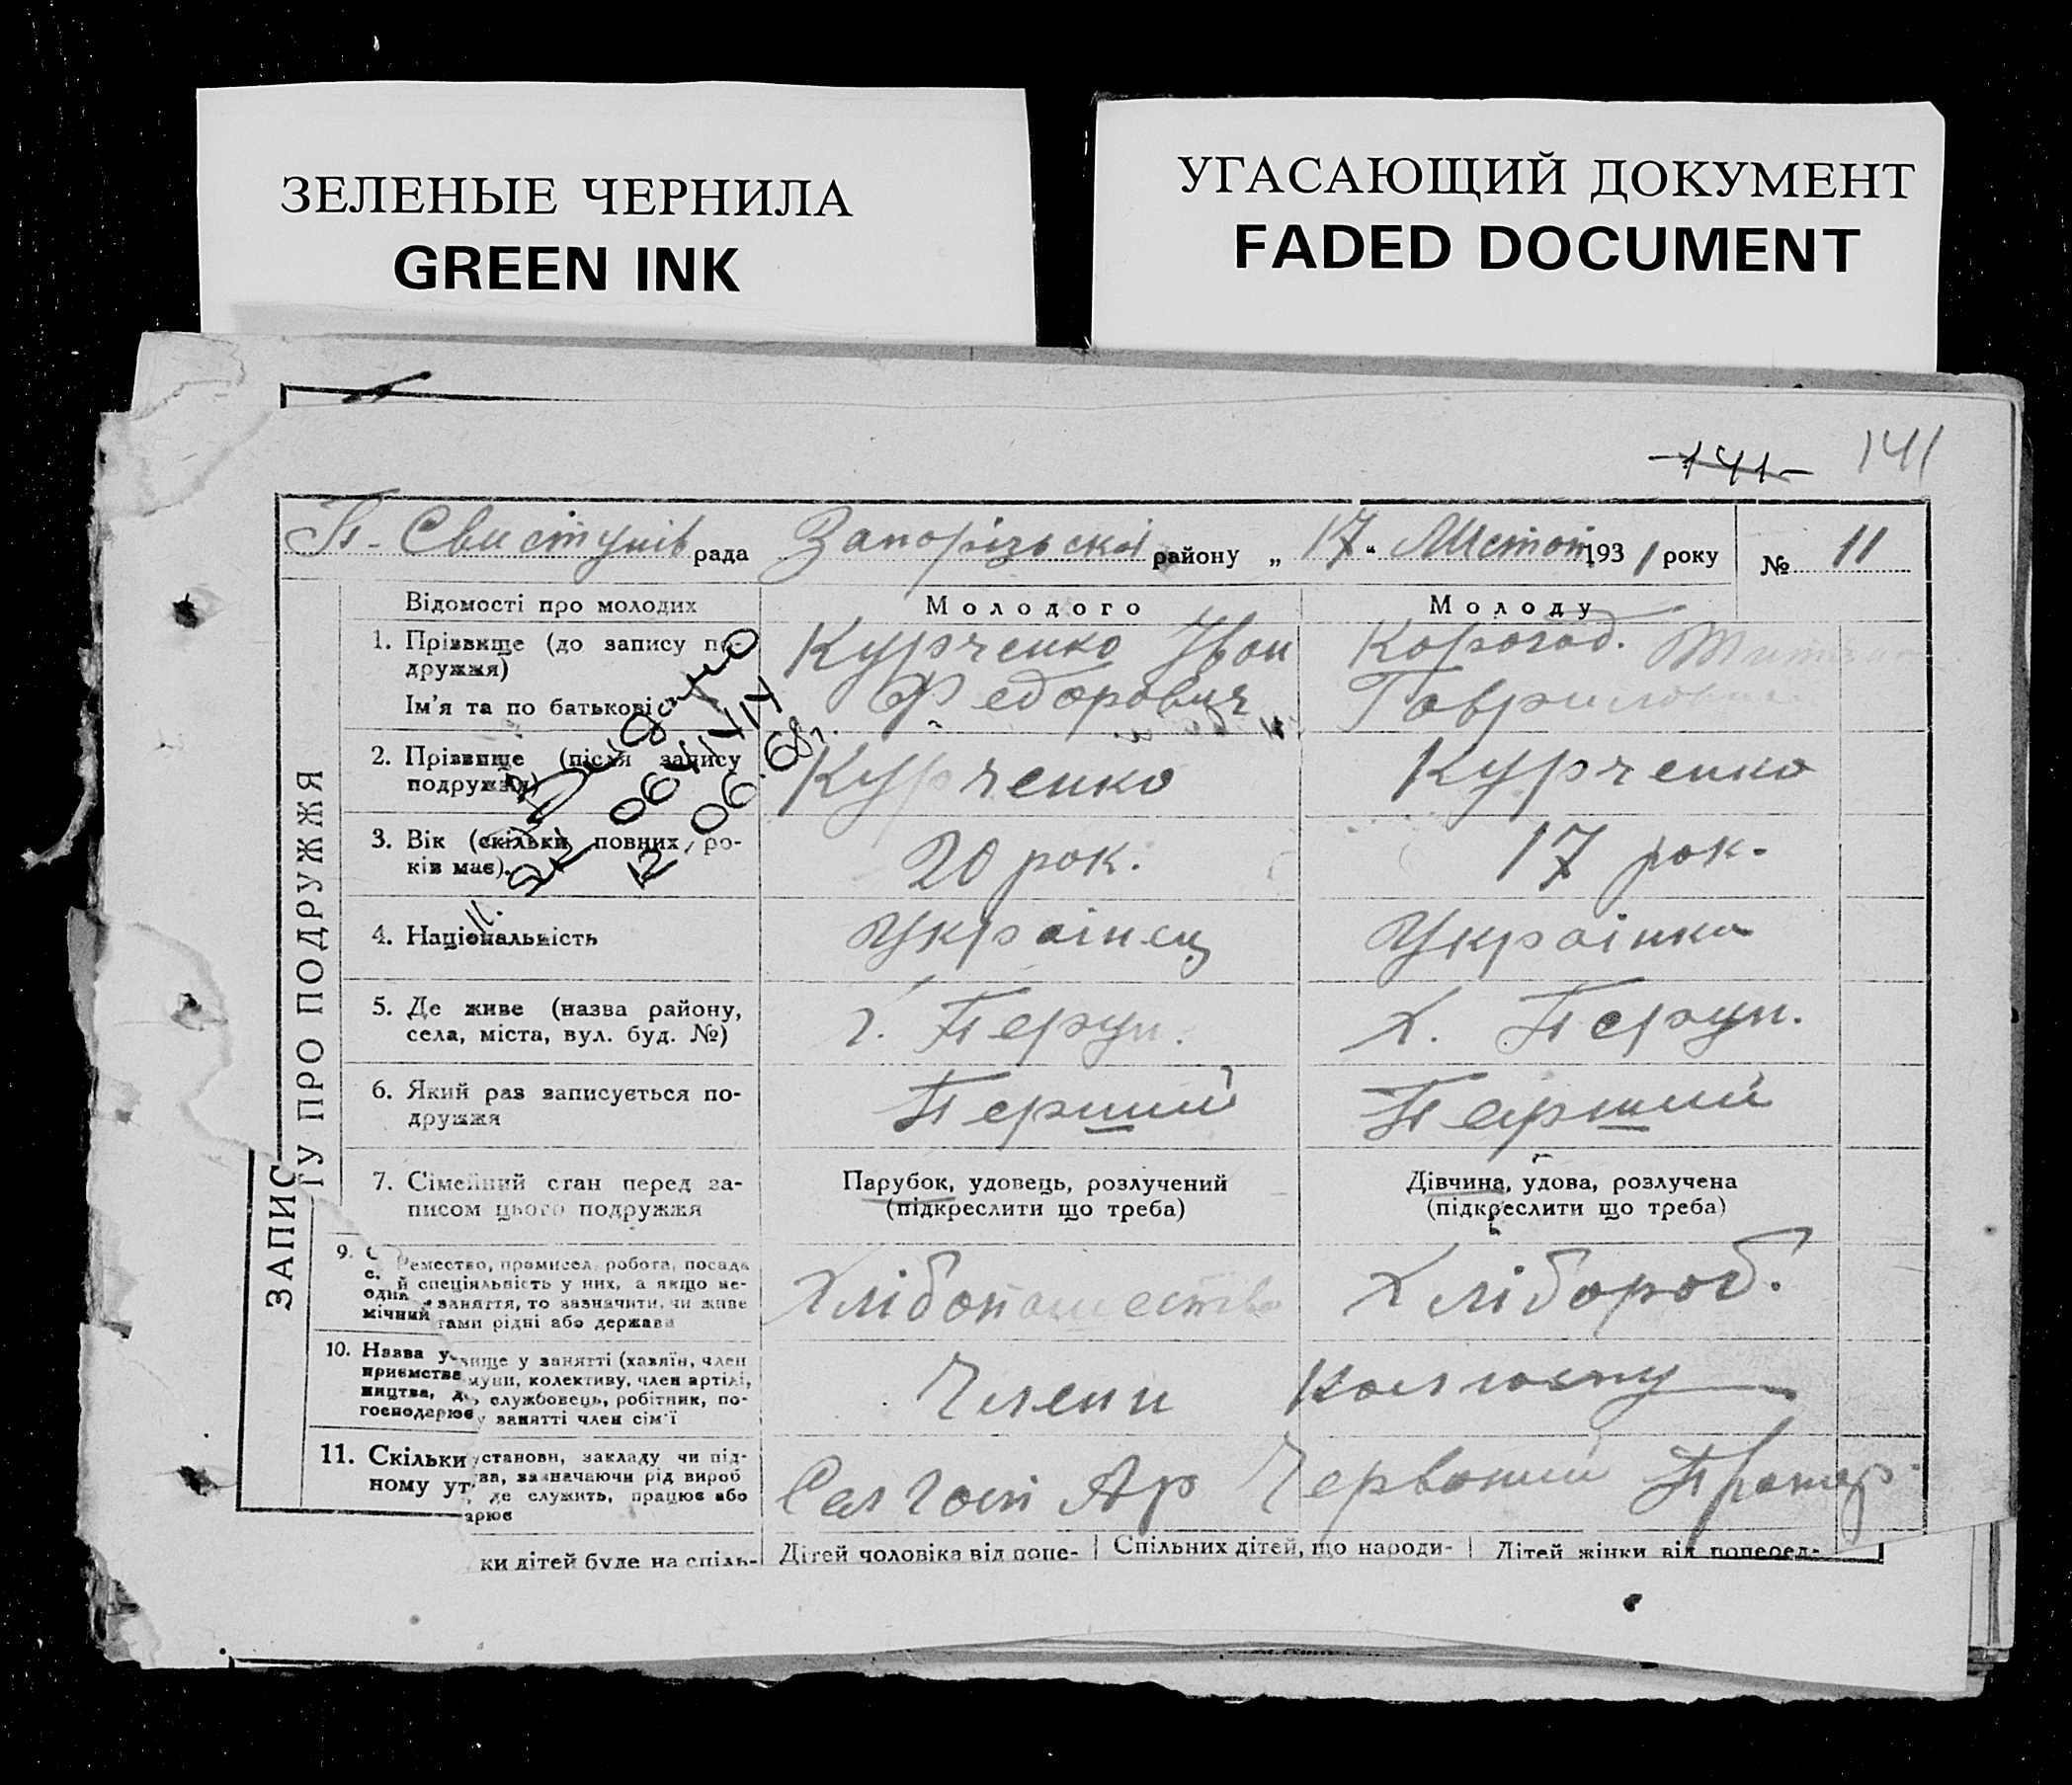 ЗЕЛЕНЫЕ ЧЕРНИЛА
GREEN INK
УГАСАЮЩИЙ ДОКУМЕНТ
FADED DOCUMENT
141 141
П-Свистунів рада Запорізької району „17“ 1931 року № 11
ЗАПИС ТУ ПРО ПОДРУЖЖЯ
Відомості про молодих Молодого Молоду
1. Прізвище (до запису по-
дружжя)
Ім'я та по батькові
Курченко Іван
Федорович
Корогод.
Гаврилов
2. Прізвище (після запису
подружжя)
Курченко Курченко
Видано
064 VІУ
12/06.68г.
3. Вік (скільки повних ро-
ків має).
20 рок. 17 рок.
4. Національність Українец Українка
5. Де живе (назва району,
села, міста, вул. буд. №)
х. Перун. х. Перун.
6. Який раз записується по-
дружжя
Перший Перший
7. Сімейний стан перед за-
писом цього подружжя
Парубок, удовець, розлучений
(підкреслити що треба)
Дівчина, удова, розлучена
(підкреслити що треба)
9. С Ремество, промисел, робота, посада
с. й спеціяльність у них, а якщо не-
одна заняття, то зазначити, чи живе
мічний тами рідні або держави
Хлібопашество Хлібороб.
10. Назва у вище у занятті (хазяїн, член
приємства муни, колективу, член артілі,
ництва, де службовець, робітник, по-
господарює у занятті член сім'ї
Члени колгоспу
11. Скільки установи, закладу чи під-
ному ут ва, зазначаючи рід вироб
, де служить, працює або
арює
Ар Червоний Прапор
ки дітей буде на спіль- Дітей чоловіка від попе- Спільних дітей, що народи- Дітей жінки від поперед-